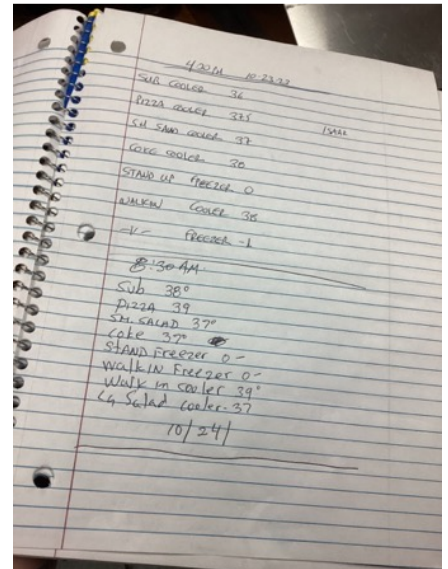 4:20 PM 10-23-22
SUB COOLER 36
PIZZA COOLER 37.5
ISAAC
SM SAND COOLER 37
COKE COOLER 38
STAND UP FREEZER 0
WALKIN COOLER 38
-V- FREEZER -1
8:30 AM
Sub 38°
PIZZA 39
SM. SALAD 37°
Coke 37°
STAND Freezer 0-
WalkIN Freezer 0-
Walk in cooler 39°
LG Salad cooler-37
10/24/